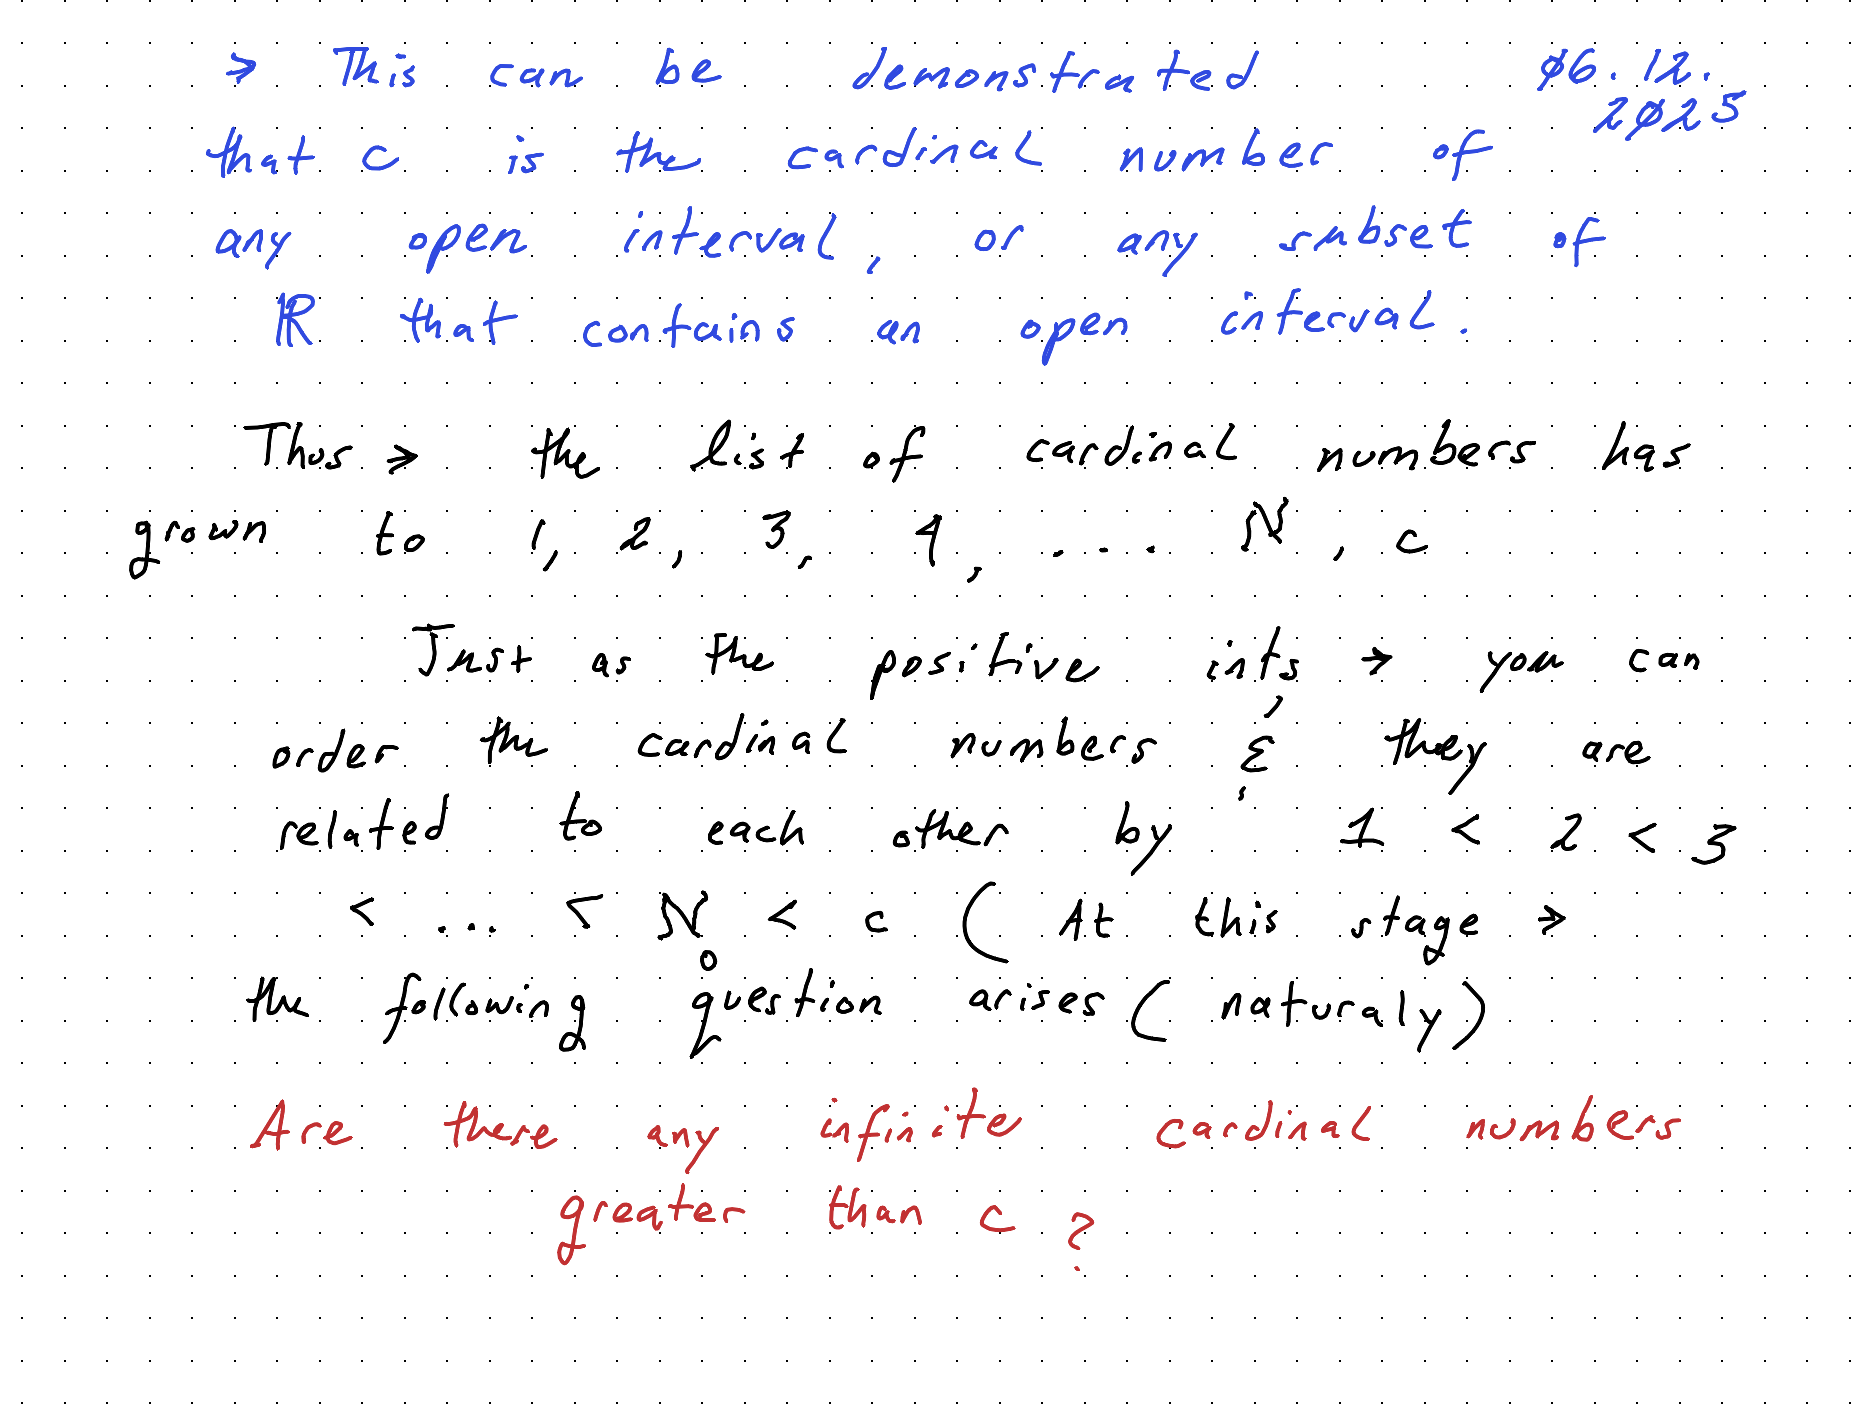 → This can be demonstrated
ø6.12.
2ø25
that c is the cardinal number of
any open interval, or any subset of
ℝ that contains an open interval.
Thus → the list of cardinal numbers has
grown to 1, 2, 3, 4, ... ℵ, c
Just as the positive ints, → you can
order the cardinal numbers & they are
related to each other by 1 < 2 < 3
< ... < ℵ₀ < c ( At this stage →
the following question arises ( naturaly )
Are there any infinite cardinal numbers
greater than c ?